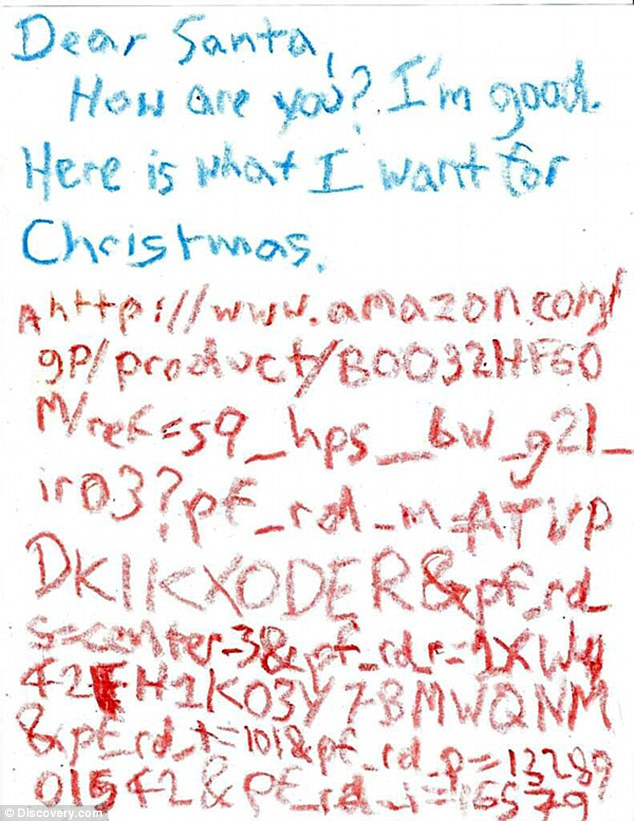 Dear Santa,
How are you? I'm good.
Here is what I want for
Christmas.
A http://www.amazon.com/
gp/product/B0032HF60
M/ref=s9_hps_bw_g21_
ir03?pf_rd_m=ATVP
DKIKX0DER&pf_rd_
s=center-3&pf_rd_r=1XWY
42FH1K03Y78MWQNM
&pf_rd_t=101&pf_rd_p=13289
01542&pf_rd_i=165579
© Discovery.com